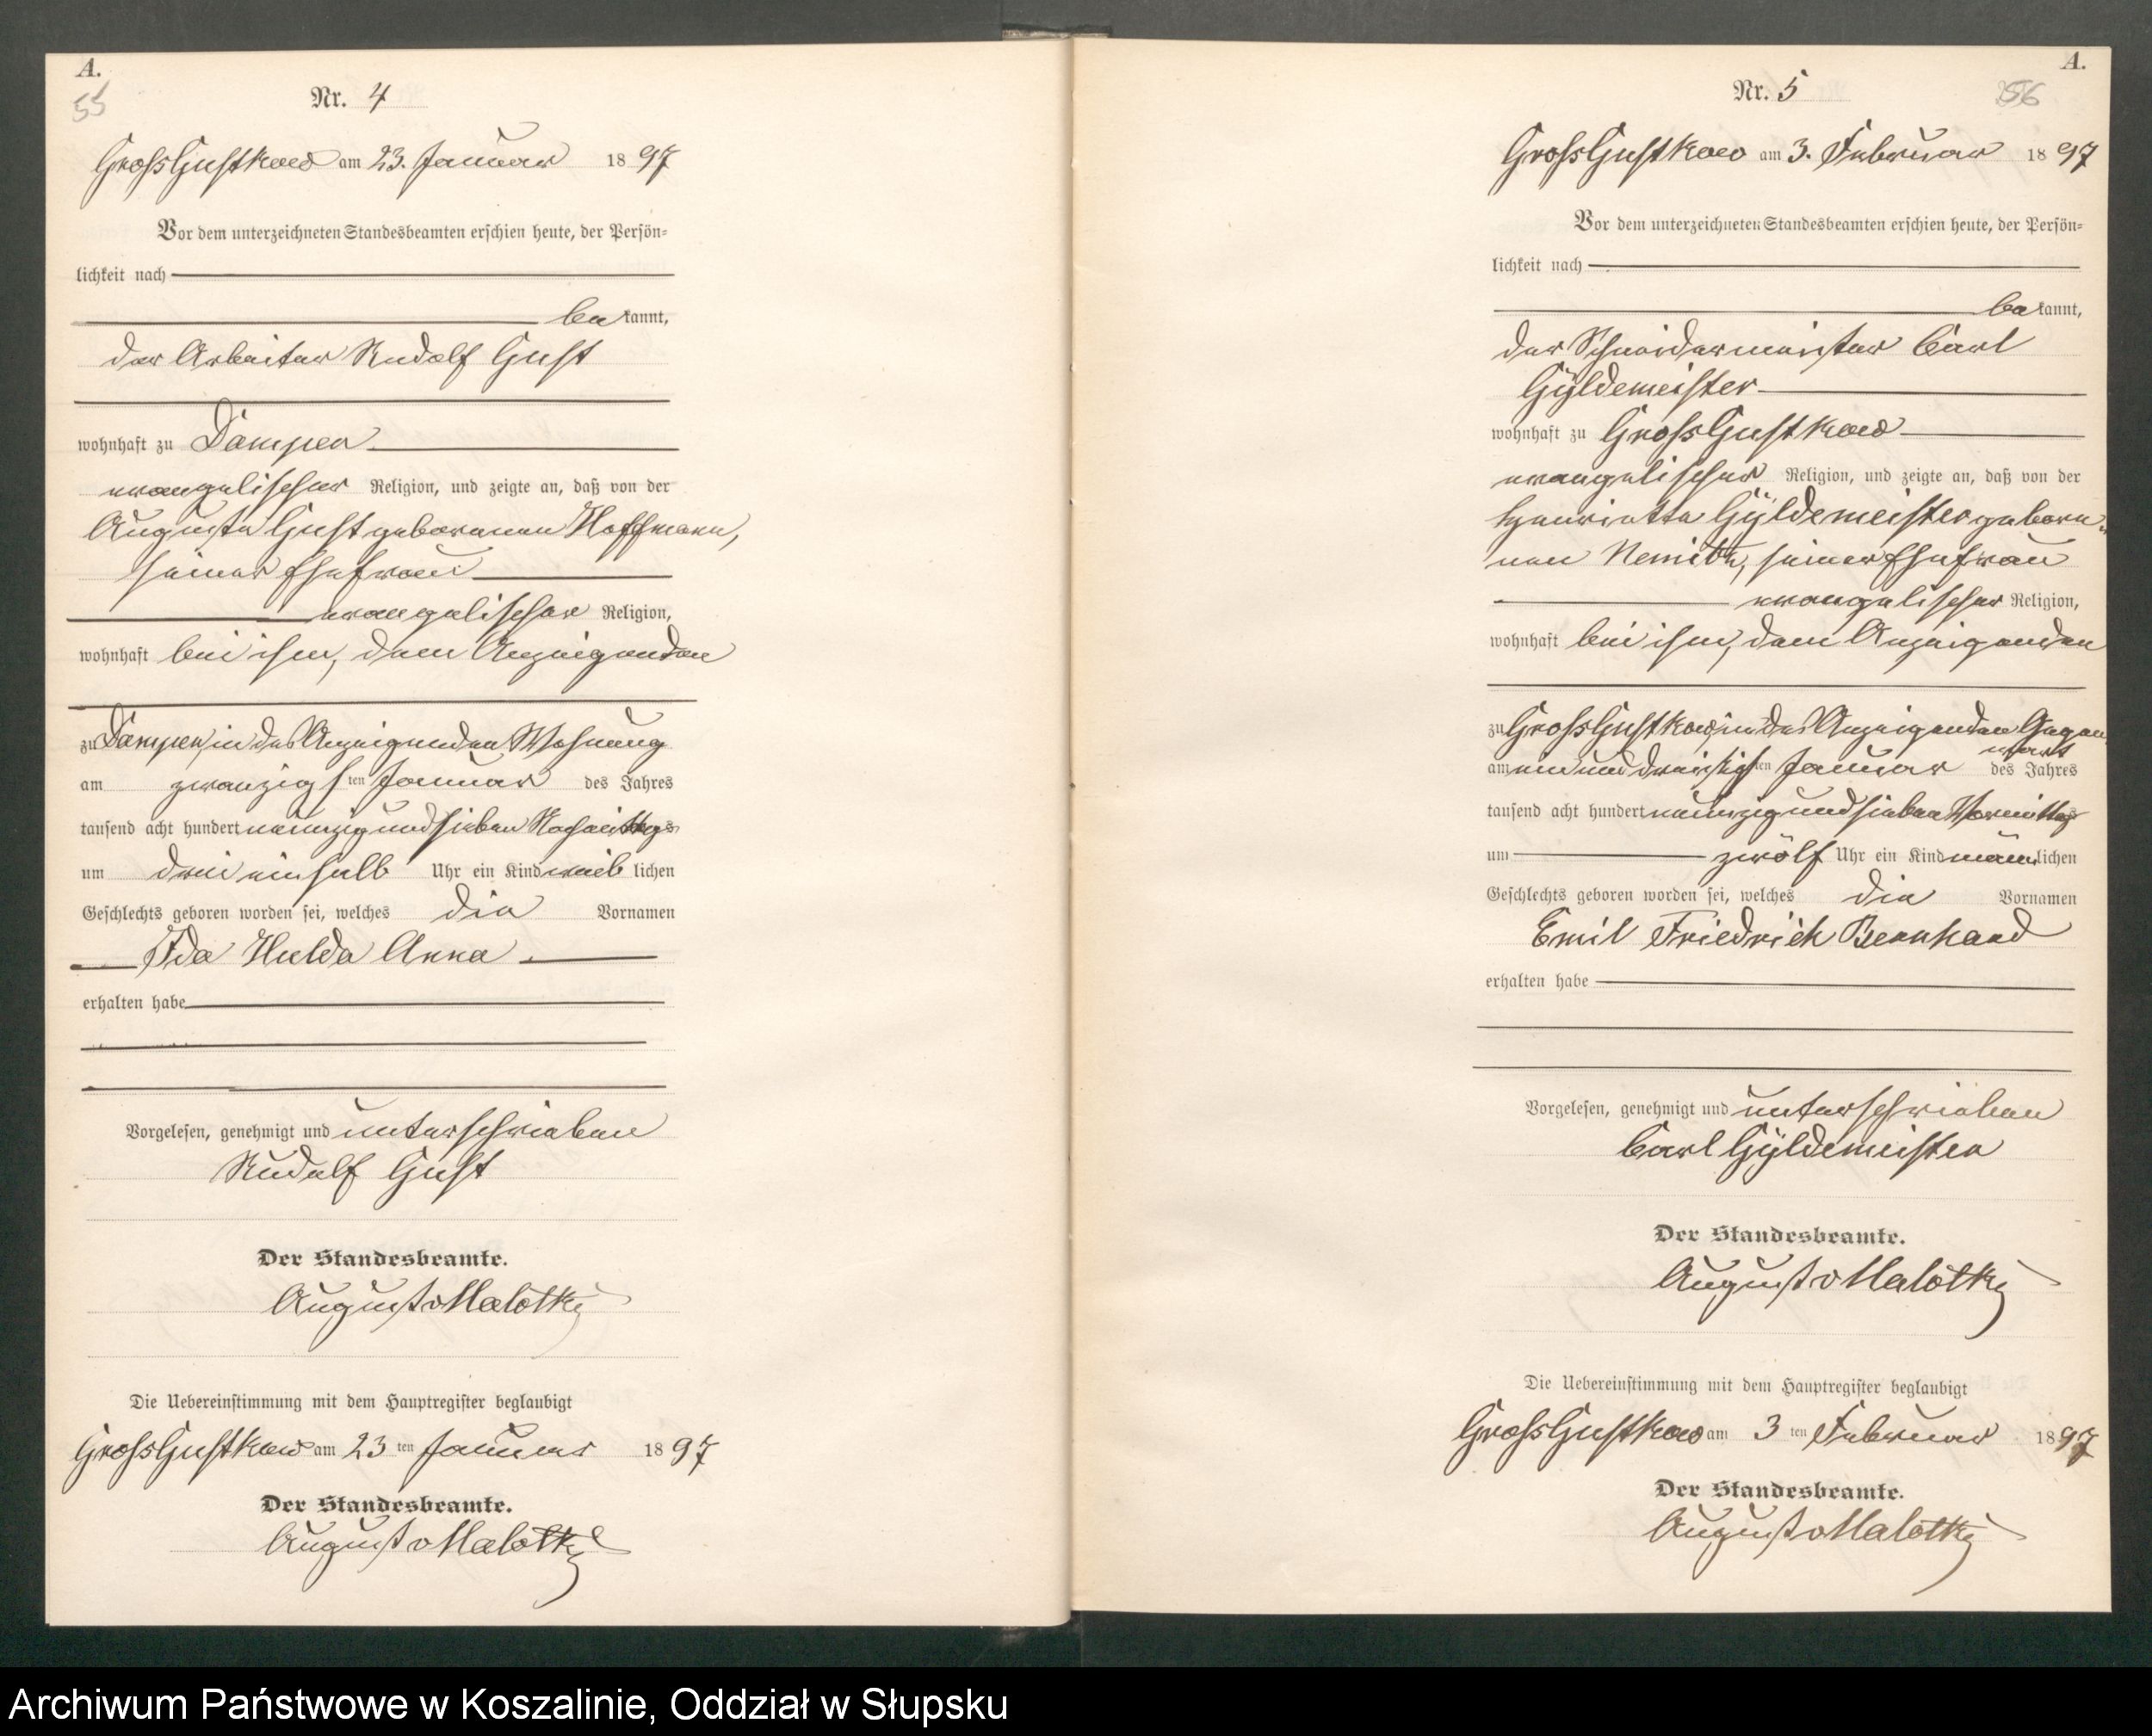 A.
55
Nr. 4
Groß Gustkow am 23. Januar 1897
Vor dem unterzeichneten Standesbeamten erschien heute, der Persön-
lichkeit nach
bekannt,
der Arbeiter Rudolf Gust
wohnhaft zu Dampen
evangelischer Religion, und zeigte an, daß von der
Auguste Gust geborenen Hoffmann,
seiner Ehefrau
evangelischer Religion,
wohnhaft bei ihm, dem Anzeigenden
zu Dampen, in des Anzeigenden Wohnung
am zwanzigsten Januar des Jahres
tausend acht hundert neunzig und sieben Nachmittags
um drei einhalb Uhr ein Kind weiblichen
Geschlechts geboren worden sei, welches die Vornamen
Ida Hulda Anna
erhalten habe
Vorgelesen, genehmigt und unterschrieben
Rudolf Gust
Der Standesbeamte.
August v Malottki
Die Uebereinstimmung mit dem Hauptregister beglaubigt
Groß Gustkow am 23ten Januar 1897
Der Standesbeamte.
August v Malottki
A.
56
Nr. 5
Groß Gustkow am 3. Februar 1897
Vor dem unterzeichneten Standesbeamten erschien heute, der Persön-
lichkeit nach
bekannt,
der Schneidermeister Carl
Gÿldemeister
wohnhaft zu Groß Gustkow
evangelischer Religion, und zeigte an, daß von der
Henriette Gÿldemeister gebore-
nen Nemitz, seiner Ehefrau
evangelischer Religion,
wohnhaft bei ihm, dem Anzeigenden
zu Groß Gustkow, in des Anzeigenden Gegen-
wart
am ein und dreißigsten Januar des Jahres
tausend acht hundert neunzig und sieben Vormittags
um zwölf Uhr ein Kind männlichen
Geschlechts geboren worden sei, welches die Vornamen
Emil Friedrich Bernhard
erhalten habe
Vorgelesen, genehmigt und unterschrieben
Carl Gÿldemeister
Der Standesbeamte.
August v Malottki
Die Uebereinstimmung mit dem Hauptregister beglaubigt
Groß Gustkow am 3ten Februar 1897
Der Standesbeamte.
August v Malottki
Archiwum Państwowe w Koszalinie, Oddział w Słupsku